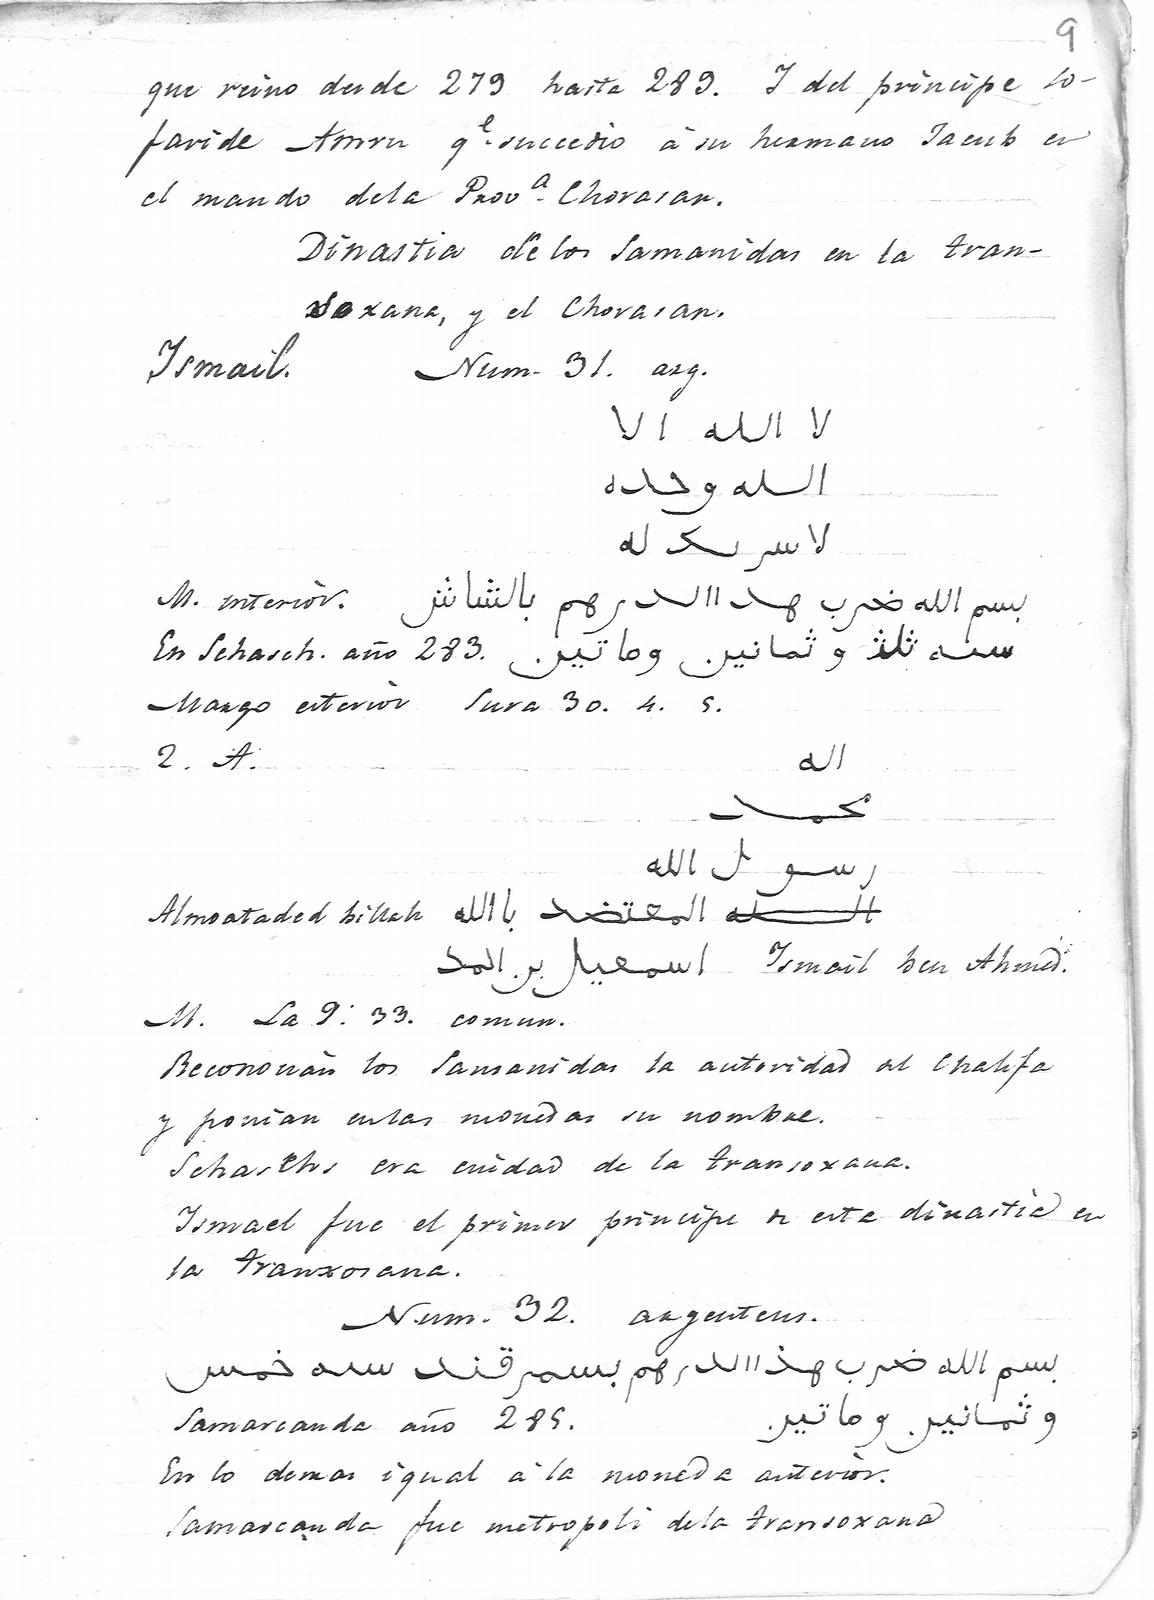 9
que reino desde 279 hasta 289. I del principe So-
faride Amru qe. succedio á su hermano Jacub en
el mando dela Prova. Chorasan.
Dinastia de los Samanidas en la tran-
soxana, y el Chorasan.
Ismail. Num. 31. arg.
لا الله الا
الله وحده
لا سريك له
M. interiòr. بسم الله ضرب هدا الدرهم بالشاش
En Schasch. año 283. سنه ثلث و ثمانين وماتين
Margo exterior Sura 30. 4. 5.
2. A. اله
محمد
رسول الله
Almoataded billah الله المعتضد باالله
اسمعيل بن احمد Ismail ben Ahmed.
M. La 9: 33. comun.
Reconocian los Samanidas la autoridad del Chalifa
y ponian enlas monedas su nombre.
era ciudad de la transoxana.
Ismael fue el primer principe de esta dinastia en
la tranxosana.
Num. 32. argenteus.
بسم الله ضرب هذا الدرهم بسمرقند سنه خمس
Samarcanda año 285. و ثمانين وماتين
En lo demas igual á la moneda anterior.
Samarcanda fue metropoli dela transoxana